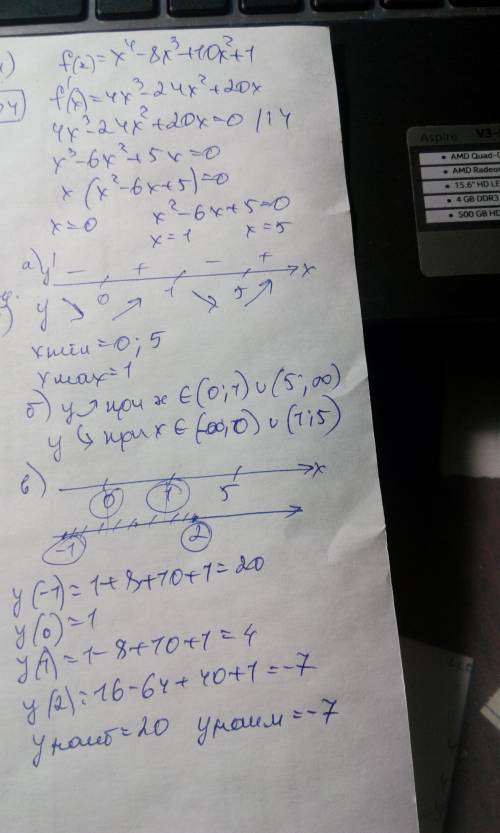 f(x)=x⁴-8x³+10x²+1
f'(x)=4x³-24x²+20x
4x³-24x²+20x=0 /:4
x³-6x²+5x=0
x(x²-6x+5)=0
x=0 x²-6x+5=0
x=1 x=5
а) y' - + - + x
0 1 5
y ↘ ↗ ↘ ↗
xmin=0; 5
xmax=1
б) y ↗ при x ∈ (0;1) ∪ (5;∞)
y ↘ при x ∈ (-∞;0) ∪ (1;5)
в) x
0 1 5
-1 2
y(-1)=1+8+10+1=20
y(0)=1
y(1)=1-8+10+1=4
y(2)=16-64+40+1=-7
y наиб=20 y наим=-7
Aspire V3-
• AMD Quad-C
• AMD Radeon
• 15.6" HD LE
• 4 GB DDR3
• 500 GB HD